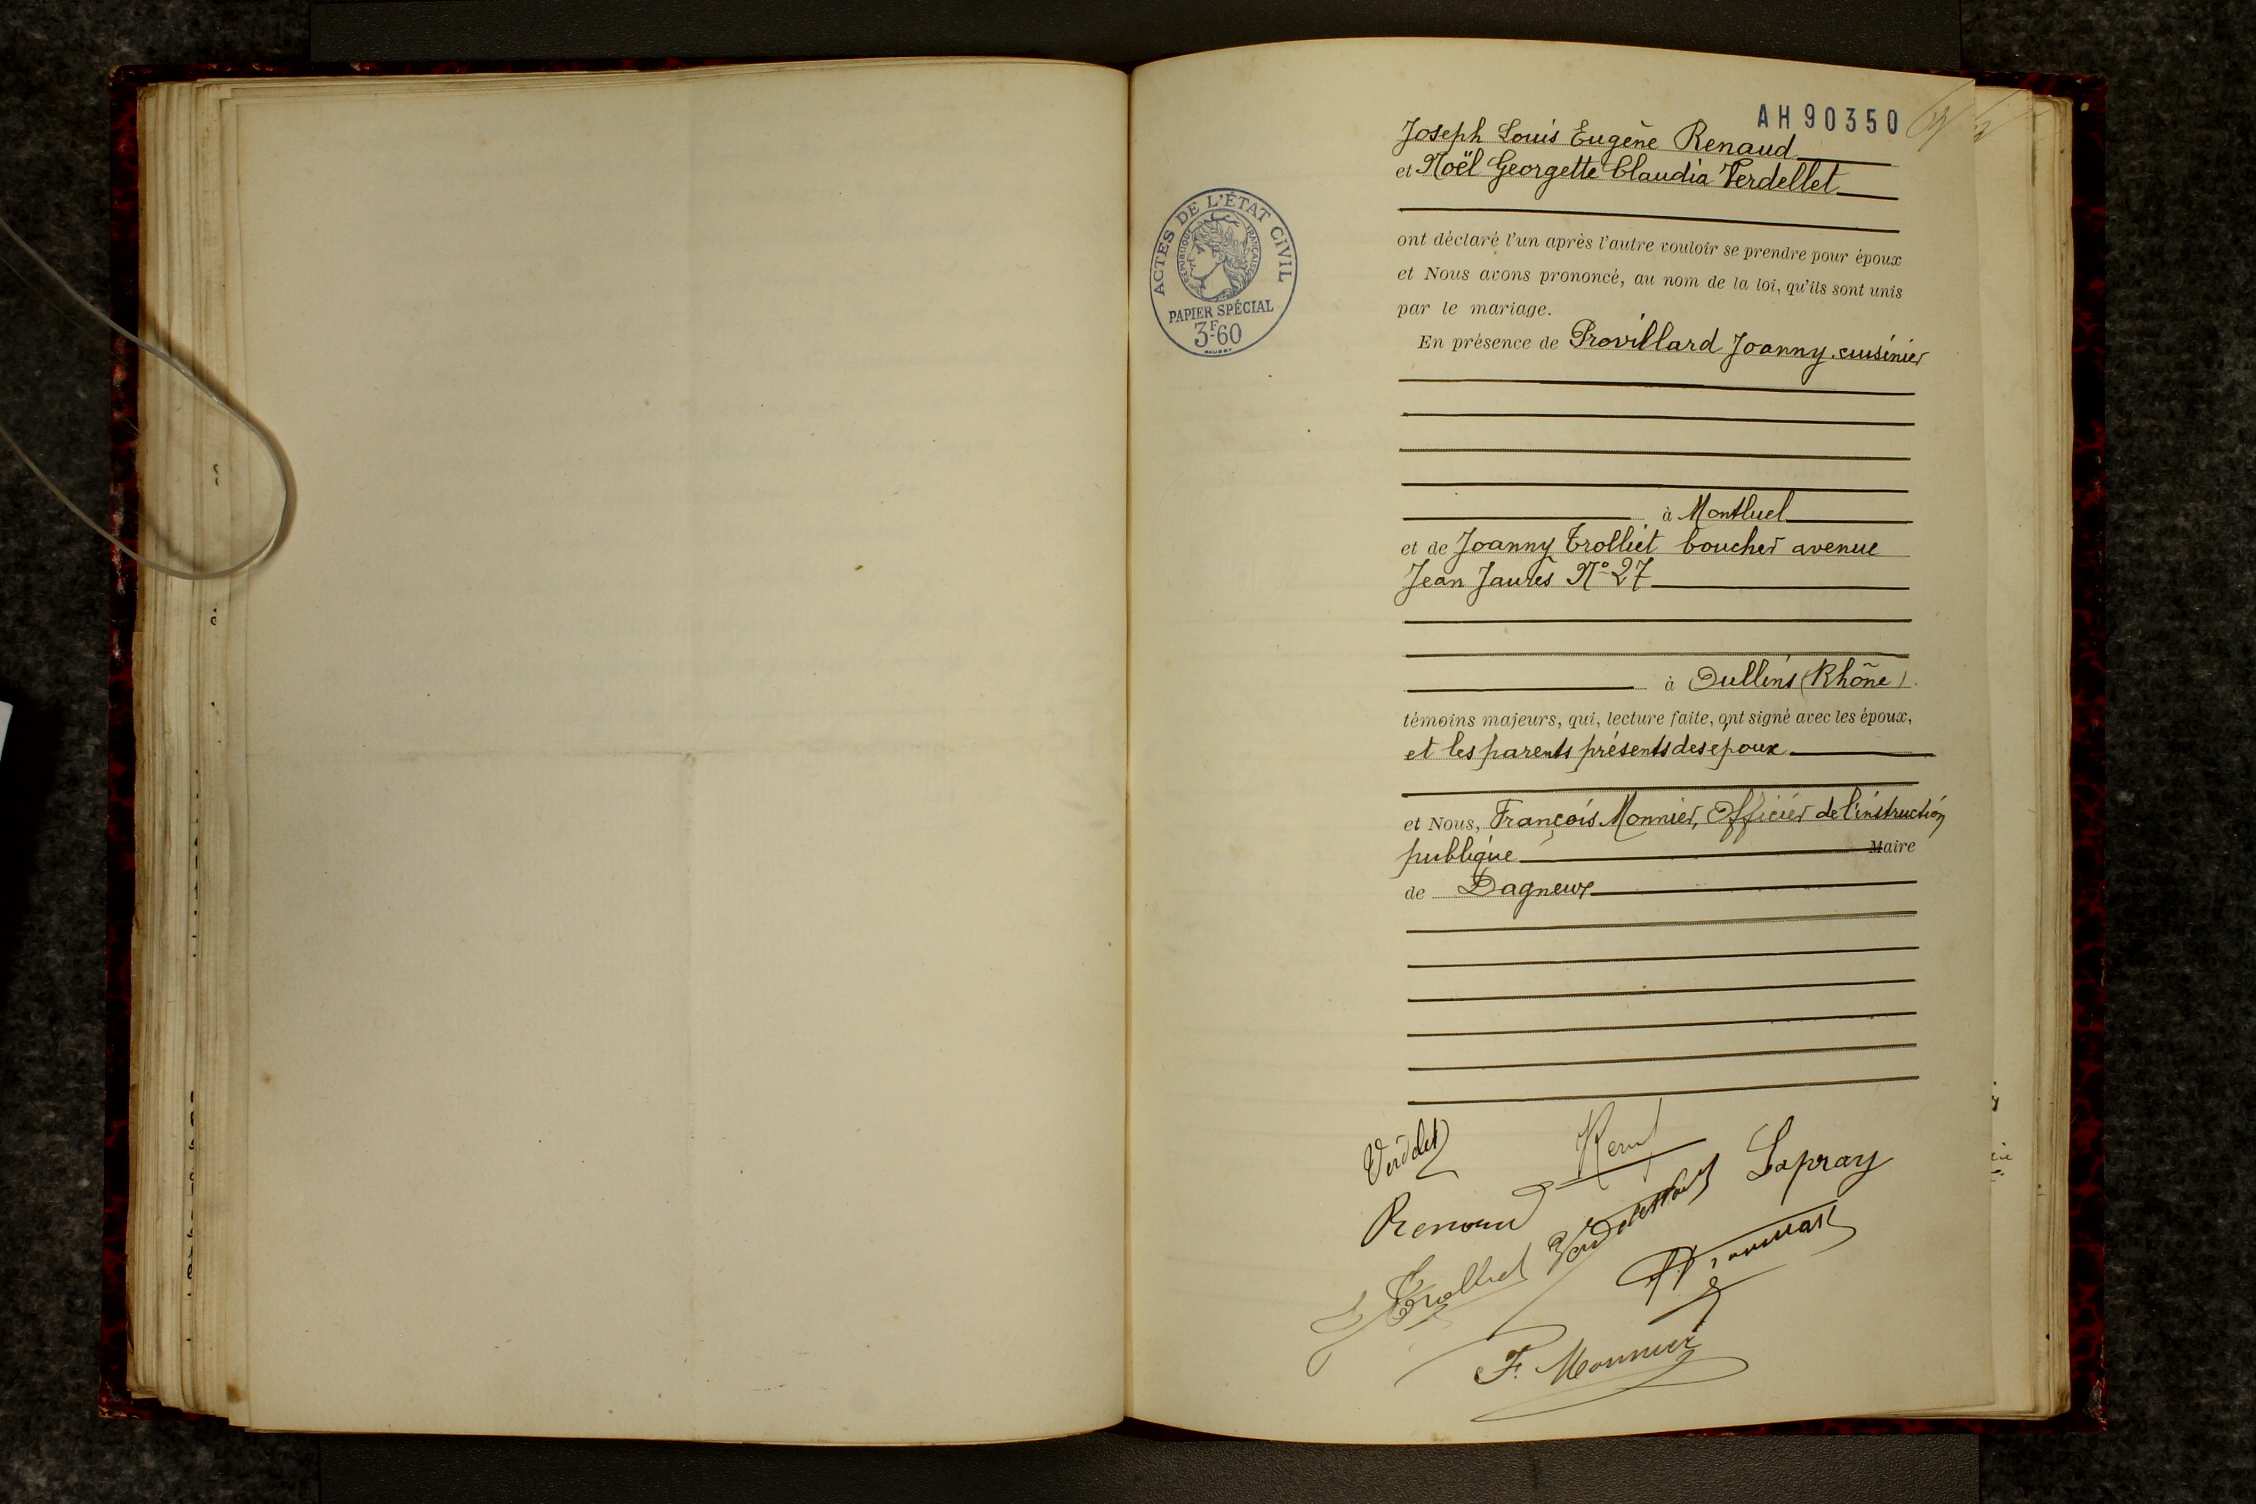 AH 90350
Joseph Louis Eugène Renaud
et Noël Georgette Claudia Verdellet
ACTES DE L'ÉTAT CIVIL
RÉPUBLIQUE FRANÇAISE
PAPIER SPÉCIAL
3F60
ont déclaré l'un après l'autre vouloir se prendre pour époux
et Nous avons prononcé, au nom de la loi, qu'ils sont unis
par le mariage.
En présence de Provillard Joanny cuisinier
à Montluel
et de Joanny Trolliet boucher avenue
Jean Jaurès N° 27
à Oullins (Rhône).
témoins majeurs, qui, lecture faite, ont signé avec les époux,
et les parents présents des époux
et Nous, François Monnier, Officier de l'instruction
publique Maire
de Dagneux
Renaud
Lapray
Trolliet
F. Monnier